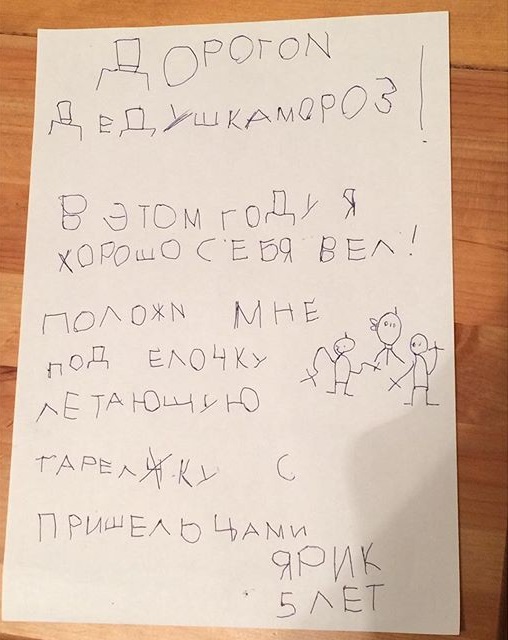 ДОРОГОИ
ДЕДУШКАМОРОЗ!
В ЭТОМ ГОДУ Я
ХОРОШО СЕБЯ ВЕЛ!
ПОЛОЖИ МНЕ
ПОД ЕЛОЧКУ
ЛЕТАЮЩУЮ
ТАРЕЛКУ С
ПРИШЕЛЬЦАМИ
ЯРИК
5 ЛЕТ